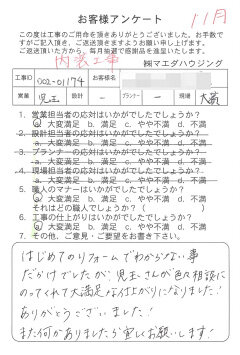 お客様アンケート
11月
この度は工事のご用命を頂きありがとうございました。お手数で
すがご記入頂き、ご返送頂きますようお願い申し上げます。
ご返送頂いた方から、毎月抽選で感謝品を進呈いたします。
内装工事
㈱マエダハウジング
工事ID 002-01174 お客様名
営業 児玉 設計 - プランナー - 現場
1. 営業担当者の応対はいかがでしたでしょうか?
a. 大変満足 b. 満足 c. やや不満 d. 不満
2. 設計担当者の応対はいかがでしたでしょうか?
a. 大変満足 b. 満足 c. やや不満 d. 不満
3. プランナーの応対はいかがでしたでしょうか?
a. 大変満足 b. 満足 c. やや不満 d. 不満
4. 現場担当者の応対はいかがでしたでしょうか?
a. 大変満足 b. 満足 c. やや不満 d. 不満
5. 職人のマナーはいかがでしたでしょうか?
a. 大変満足 b. 満足 c. やや不満 d. 不満
それはどの職人でしょうか?(
6. 工事の仕上がりはいかがでしたでしょうか?
a. 大変満足 b. 満足 c. やや不満 d. 不満
7. その他、ご意見・ご要望をお書き下さい。
はじめてのリフォームでわからない事
だらけでしたが 児玉さんが色々相談に
のってくれて大満足な仕上がりになりました!
ありがとうございました!
また何かありましたら宜しくお願いします!